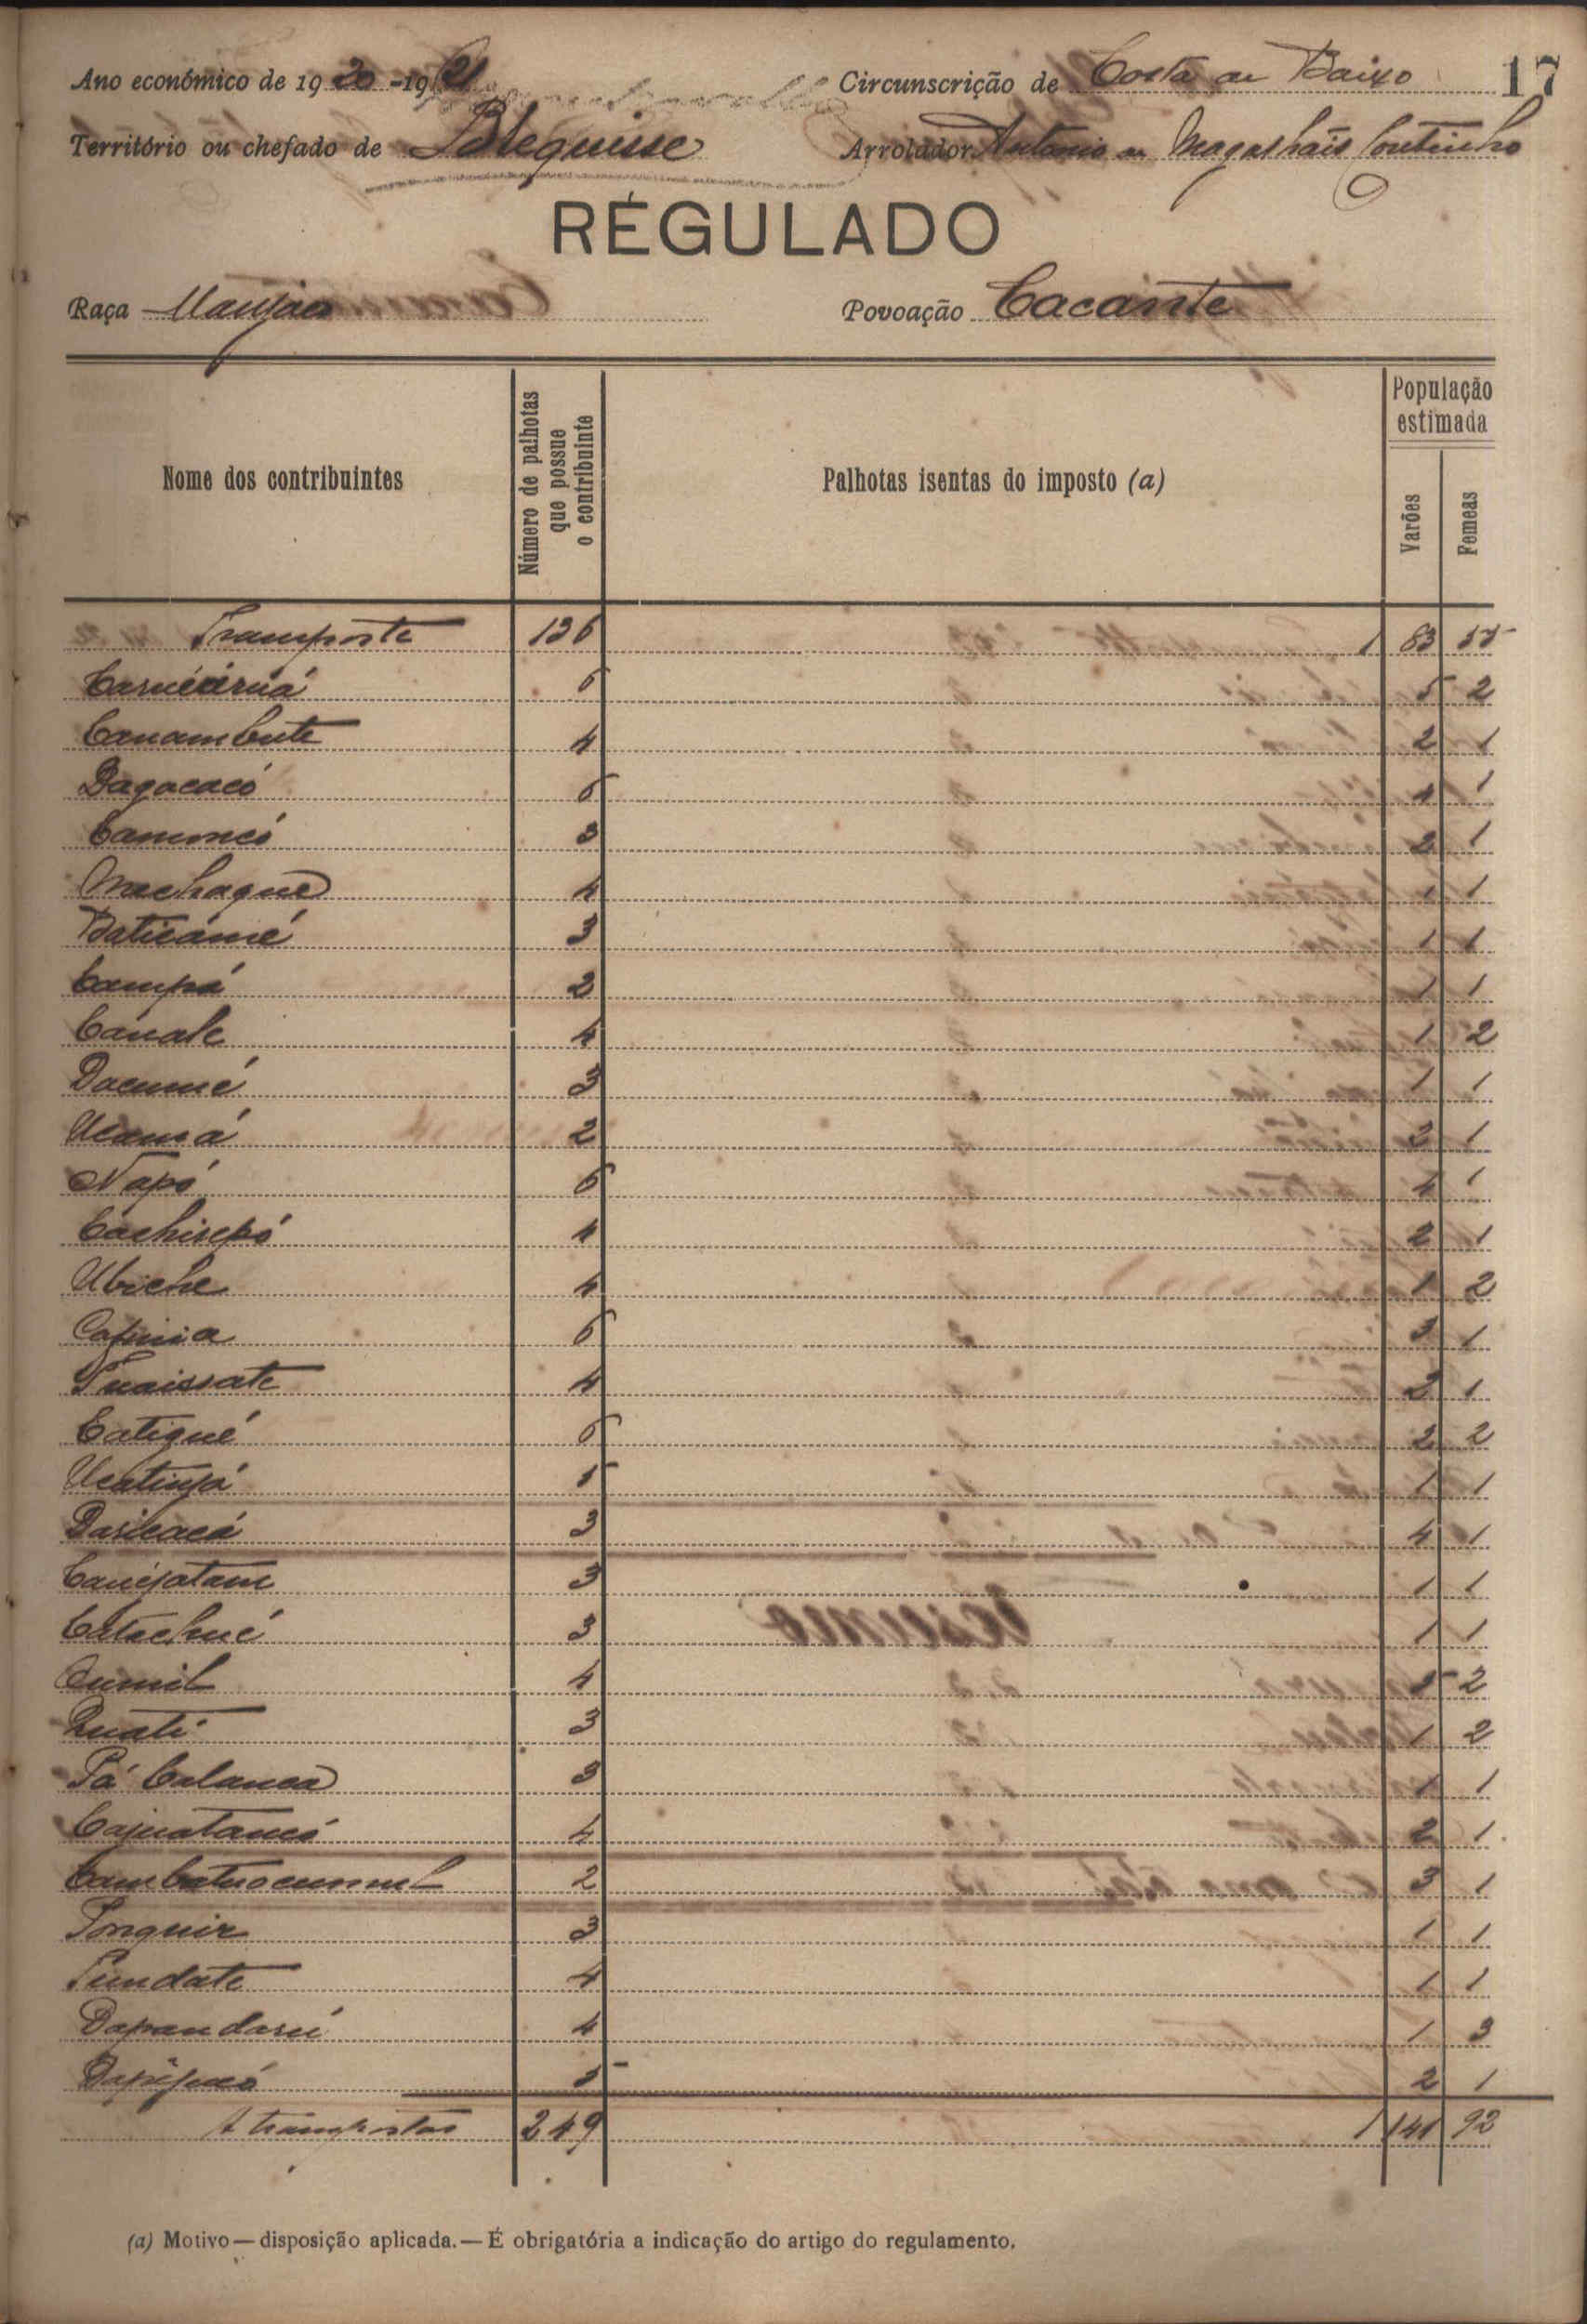 Ano económico de 1920-1921 Circunscrição de Costa de Baixo 17
Território ou chefado de Bleguisse Arrolador Antonio de Magalhãis Coutinho
RÉGULADO
Raça Manjaca Povoação Cacante
Nome dos contribuintes Número de palhotas que possue o contribuinte Palhotas isentas do imposto (a) População estimada Varões Femeas
Transporte 136 1 83 55
6 5 2
Canambute 4 2 1
Dagacacó 6 4 1
3 2 1
Machaque 4 1 1
Baticamé 3 1 1
Campá 2 1 1
Canale 4 1 2
Dacumé 3 1 1
Ucamá 2 2 1
Napó 6 4 1
4 2 1
Ubiche 4 1 2
Cafinia 6 3 1
4 2 1
Catiqué 6 2 2
Ucatinjá 5 1 1
3 4 1
3 1 1
Catachué 3 1 1
4 5 2
Quati 3 1 2
Pá Calanca 3 1 1
4 2 1
2 3 1
Ponquir 3 1 1
Pundate 4 1 1
Dapandarú 4 1 3
5 2 1
A transportar 249 1 141 92
(a) Motivo — disposição aplicada. — É obrigatória a indicação do artigo do regulamento.